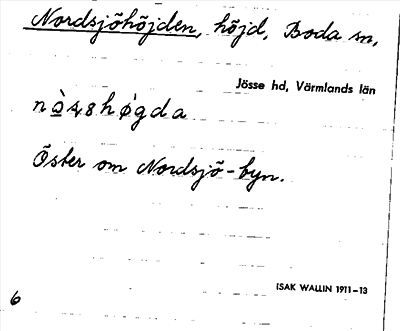 Nordsjöhöjden, höjd, Boda sn,
Jösse hd, Värmlands län
Öster om Nordsjö-byn.
ISAK WALLIN 1911–13
6